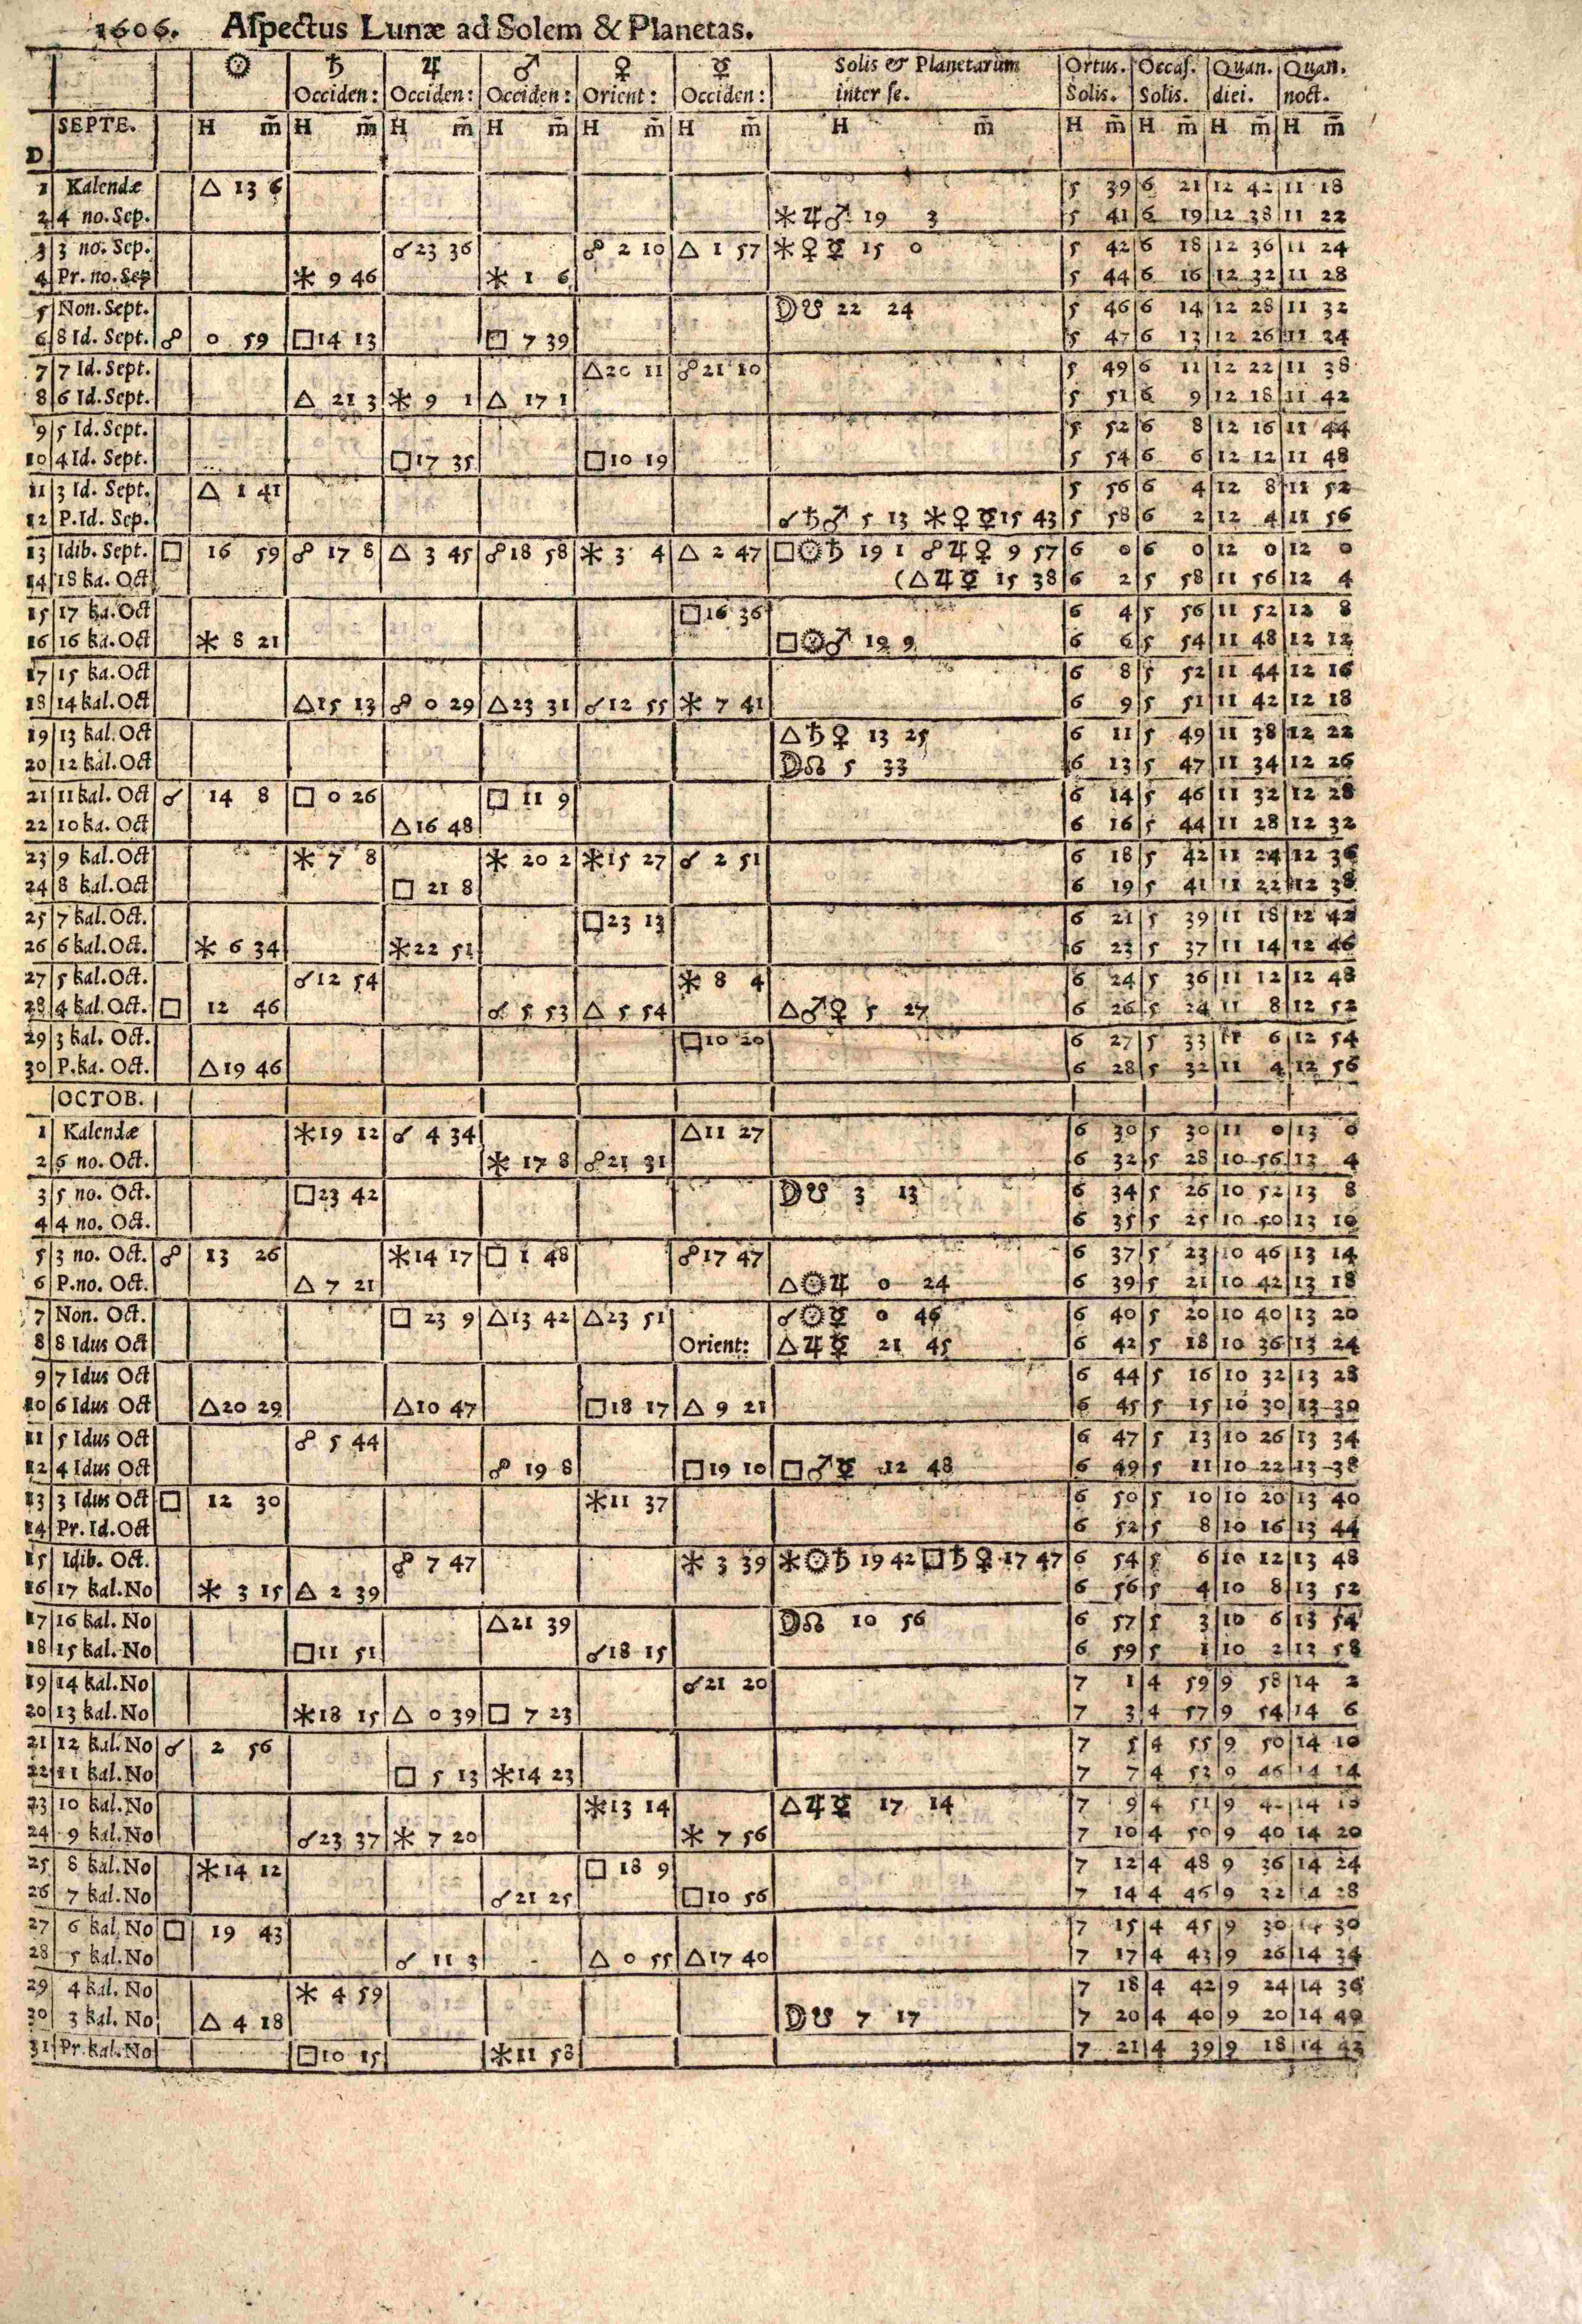 1606. Aſpectus Lunæ ad Solem & Planetas.
☉ ♄ ♃ ♂ ♀ ☿ Solis & Planetarum Ortus. Occaſ. Quan. Quan.
Occiden: Occiden: Occiden: Orient: Occiden: inter ſe. Solis. Solis. diei. noct.
SEPTE. H m̄ H m̄ H m̄ H m̄ H m̄ H m̄ H m̄ H m̄ H m̄ H m̄ H m̄
D
1 Kalendæ △ 13 6 5 39 6 21 12 42 11 18
2 4 no. Sep. ⚹ ♃ ♂ 19 3 5 41 6 19 12 38 11 22
3 3 no. Sep. ☌ 23 36 ☍ 2 10 △ 1 57 ⚹ ♀ ☿ 15 0 5 42 6 18 12 36 11 24
4 Pr. no. Sep ⚹ 9 46 ⚹ 1 6 5 44 6 16 12 32 11 28
5 Non. Sept. ☽ ☋ 22 24 5 46 6 14 12 28 11 32
6 8 Id. Sept. ☍ 0 59 □ 14 13 □ 7 39 5 47 6 13 12 26 11 24
7 7 Id. Sept. △ 20 11 ☍ 21 10 5 49 6 11 12 22 11 38
8 6 Id. Sept. △ 21 3 ⚹ 9 1 △ 17 1 5 51 6 9 12 18 11 42
9 5 Id. Sept. 5 52 6 8 12 16 11 44
10 4 Id. Sept. □ 17 35 □ 10 19 5 54 6 6 12 12 11 48
11 3 Id. Sept. △ 1 41 5 56 6 4 12 8 11 52
12 P. Id. Sep. ☌ ♄ ♂ 5 13 ⚹ ♀ ☿ 15 43 5 58 6 2 12 4 11 56
13 Idib. Sept. □ 16 59 ☍ 17 8 △ 3 45 ☍ 18 58 ⚹ 3 4 △ 2 47 □ ☉ ♄ 19 1 ☍ ♃ ♀ 9 57 6 0 6 0 12 0 12 0
14 18 ka. Oct (△ ♃ ☿ 15 38 6 2 5 58 11 56 12 4
15 17 ka. Oct □ 16 36 6 4 5 56 11 52 12 8
16 16 ka. Oct ⚹ 8 21 □ ☉ ♂ 19 9 6 6 5 54 11 48 12 12
17 15 ka. Oct 6 8 5 52 11 44 12 16
18 14 kal. Oct △ 15 13 ☍ 0 29 △ 23 31 ☌ 12 55 ⚹ 7 41 6 9 5 51 11 42 12 18
19 13 kal. Oct △ ♄ ♀ 13 25 6 11 5 49 11 38 12 22
20 12 kal. Oct ☽ ☊ 5 33 6 13 5 47 11 34 12 26
21 11 kal. Oct ☌ 14 8 □ 0 26 □ 11 9 6 14 5 46 11 32 12 28
22 10 ka. Oct △ 16 48 6 16 5 44 11 28 12 32
23 9 kal. Oct ⚹ 7 8 ⚹ 20 2 ⚹ 15 27 ☌ 2 51 6 18 5 42 11 24 12 36
24 8 kal. Oct □ 21 8 6 19 5 41 11 22 12 38
25 7 kal. Oct. □ 23 13 6 21 5 39 11 18 12 42
26 6 kal. Oct. ⚹ 6 34 ⚹ 22 51 6 23 5 37 11 14 12 46
27 5 kal. Oct. ☌ 12 54 ⚹ 8 4 6 24 5 36 11 12 12 48
28 4 kal. Oct. □ 12 46 ☌ 5 53 △ 5 54 △ ♂ ♀ 5 27 6 26 5 24 11 8 12 52
29 3 kal. Oct. □ 10 20 6 27 5 33 11 6 12 54
30 P. ka. Oct. △ 19 46 6 28 5 32 11 4 12 56
OCTOB.
1 Kalendæ ⚹ 19 12 ☌ 4 34 △ 11 27 6 30 5 30 11 0 13 0
2 6 no. Oct. ⚹ 17 8 ☍ 21 31 6 32 5 28 10 56 13 4
3 5 no. Oct. □ 23 42 ☽ ☋ 3 13 6 34 5 26 10 52 13 8
4 4 no. Oct. 6 35 5 25 10 50 13 10
5 3 no. Oct. ☍ 13 26 ⚹ 14 17 □ 1 48 ☍ 17 47 6 37 5 23 10 46 13 14
6 P. no. Oct. △ 7 21 △ ☉ ♃ 0 24 6 39 5 21 10 42 13 18
7 Non. Oct. □ 23 9 △ 13 42 △ 23 51 ☌ ☉ ☿ 0 46 6 40 5 20 10 40 13 20
8 8 Idus Oct Orient: △ ♃ ☿ 21 45 6 42 5 18 10 36 13 24
9 7 Idus Oct 6 44 5 16 10 32 13 28
10 6 Idus Oct △ 20 29 △ 10 47 □ 18 17 △ 9 21 6 45 5 15 10 30 13 30
11 5 Idus Oct ☍ 5 44 6 47 5 13 10 26 13 34
12 4 Idus Oct ☍ 19 8 □ 19 10 □ ♂ ☿ 12 48 6 49 5 11 10 22 13 38
13 3 Idus Oct □ 12 30 ⚹ 11 37 6 50 5 10 10 20 13 40
14 Pr. Id. Oct 6 52 5 8 10 16 13 44
15 Idib. Oct. ☍ 7 47 ⚹ 3 39 ⚹ ☉ ♄ 19 42 □ ♄ ♀ 17 47 6 54 5 6 10 12 13 48
16 17 kal. No ⚹ 3 15 △ 2 39 6 56 5 4 10 8 13 52
17 16 kal. No △ 21 39 ☽ ☊ 10 56 6 57 5 3 10 6 13 54
18 15 kal. No □ 11 51 ☌ 18 15 6 59 5 1 10 2 13 58
19 14 kal. No ☌ 21 20 7 1 4 59 9 58 14 2
20 13 kal. No ⚹ 18 15 △ 0 39 □ 7 23 7 3 4 57 9 54 14 6
21 12 kal. No ☌ 2 56 7 5 4 55 9 50 14 10
22 11 kal. No □ 5 13 ⚹ 14 23 7 7 4 53 9 46 14 14
23 10 kal. No ⚹ 13 14 △ ♃ ☿ 17 14 7 9 4 51 9 14
24 9 kal. No ☌ 23 37 ⚹ 7 20 ⚹ 7 56 7 10 4 50 9 40 14 20
25 8 kal. No ⚹ 14 12 □ 18 9 7 12 4 48 9 36 14 24
26 7 kal. No ☌ 21 25 □ 10 56 7 14 4 46 9 32 14 28
27 6 kal. No □ 19 43 7 15 4 45 9 30 14 30
28 5 kal. No ☌ 11 3 △ 0 55 △ 17 40 7 17 4 43 9 26 14 34
29 4 kal. No ⚹ 4 59 7 18 4 42 9 24 14 36
30 3 kal. No △ 4 18 ☽ ☋ 7 17 7 20 4 40 9 20 14 40
31 Pr. kal. No □ 10 15 ⚹ 11 58 7 21 4 39 9 18 14